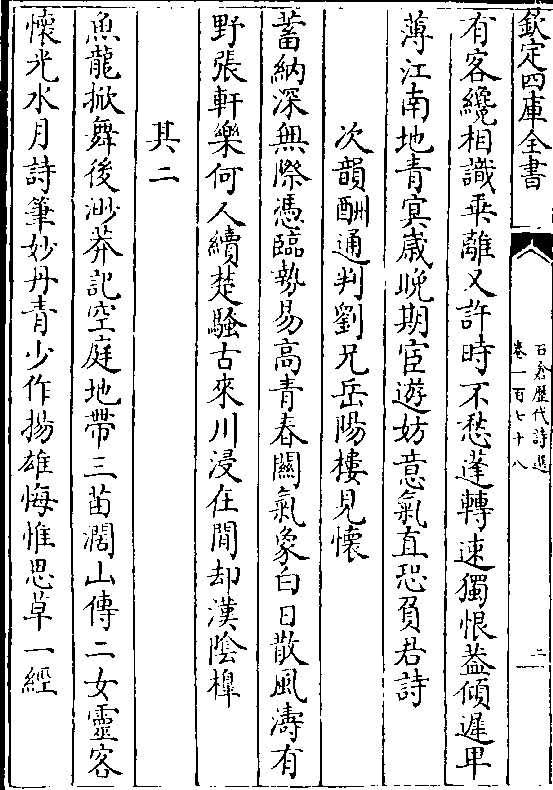 欽定四庫全書
石倉歷代詩選
卷一百七十八
二
有客纔相識乖離又許時不愁蓬轉速獨恨葢傾遲卑
薄江南地青冥歲晚期宦遊妨意氣直恐負君詩
次韻酬通判劉兄岳陽樓見懷
蓄納深無際憑臨勢易髙青春闗氣象白日散風濤有
野張軒樂何人續楚騷古來川浸在閒却漢陰橰
其二
魚龍掀舞後渺莽記空庭地帶三苗濶山傳二女靈客
懷光水月詩筆妙丹青少作揚雄悔惟思草一經